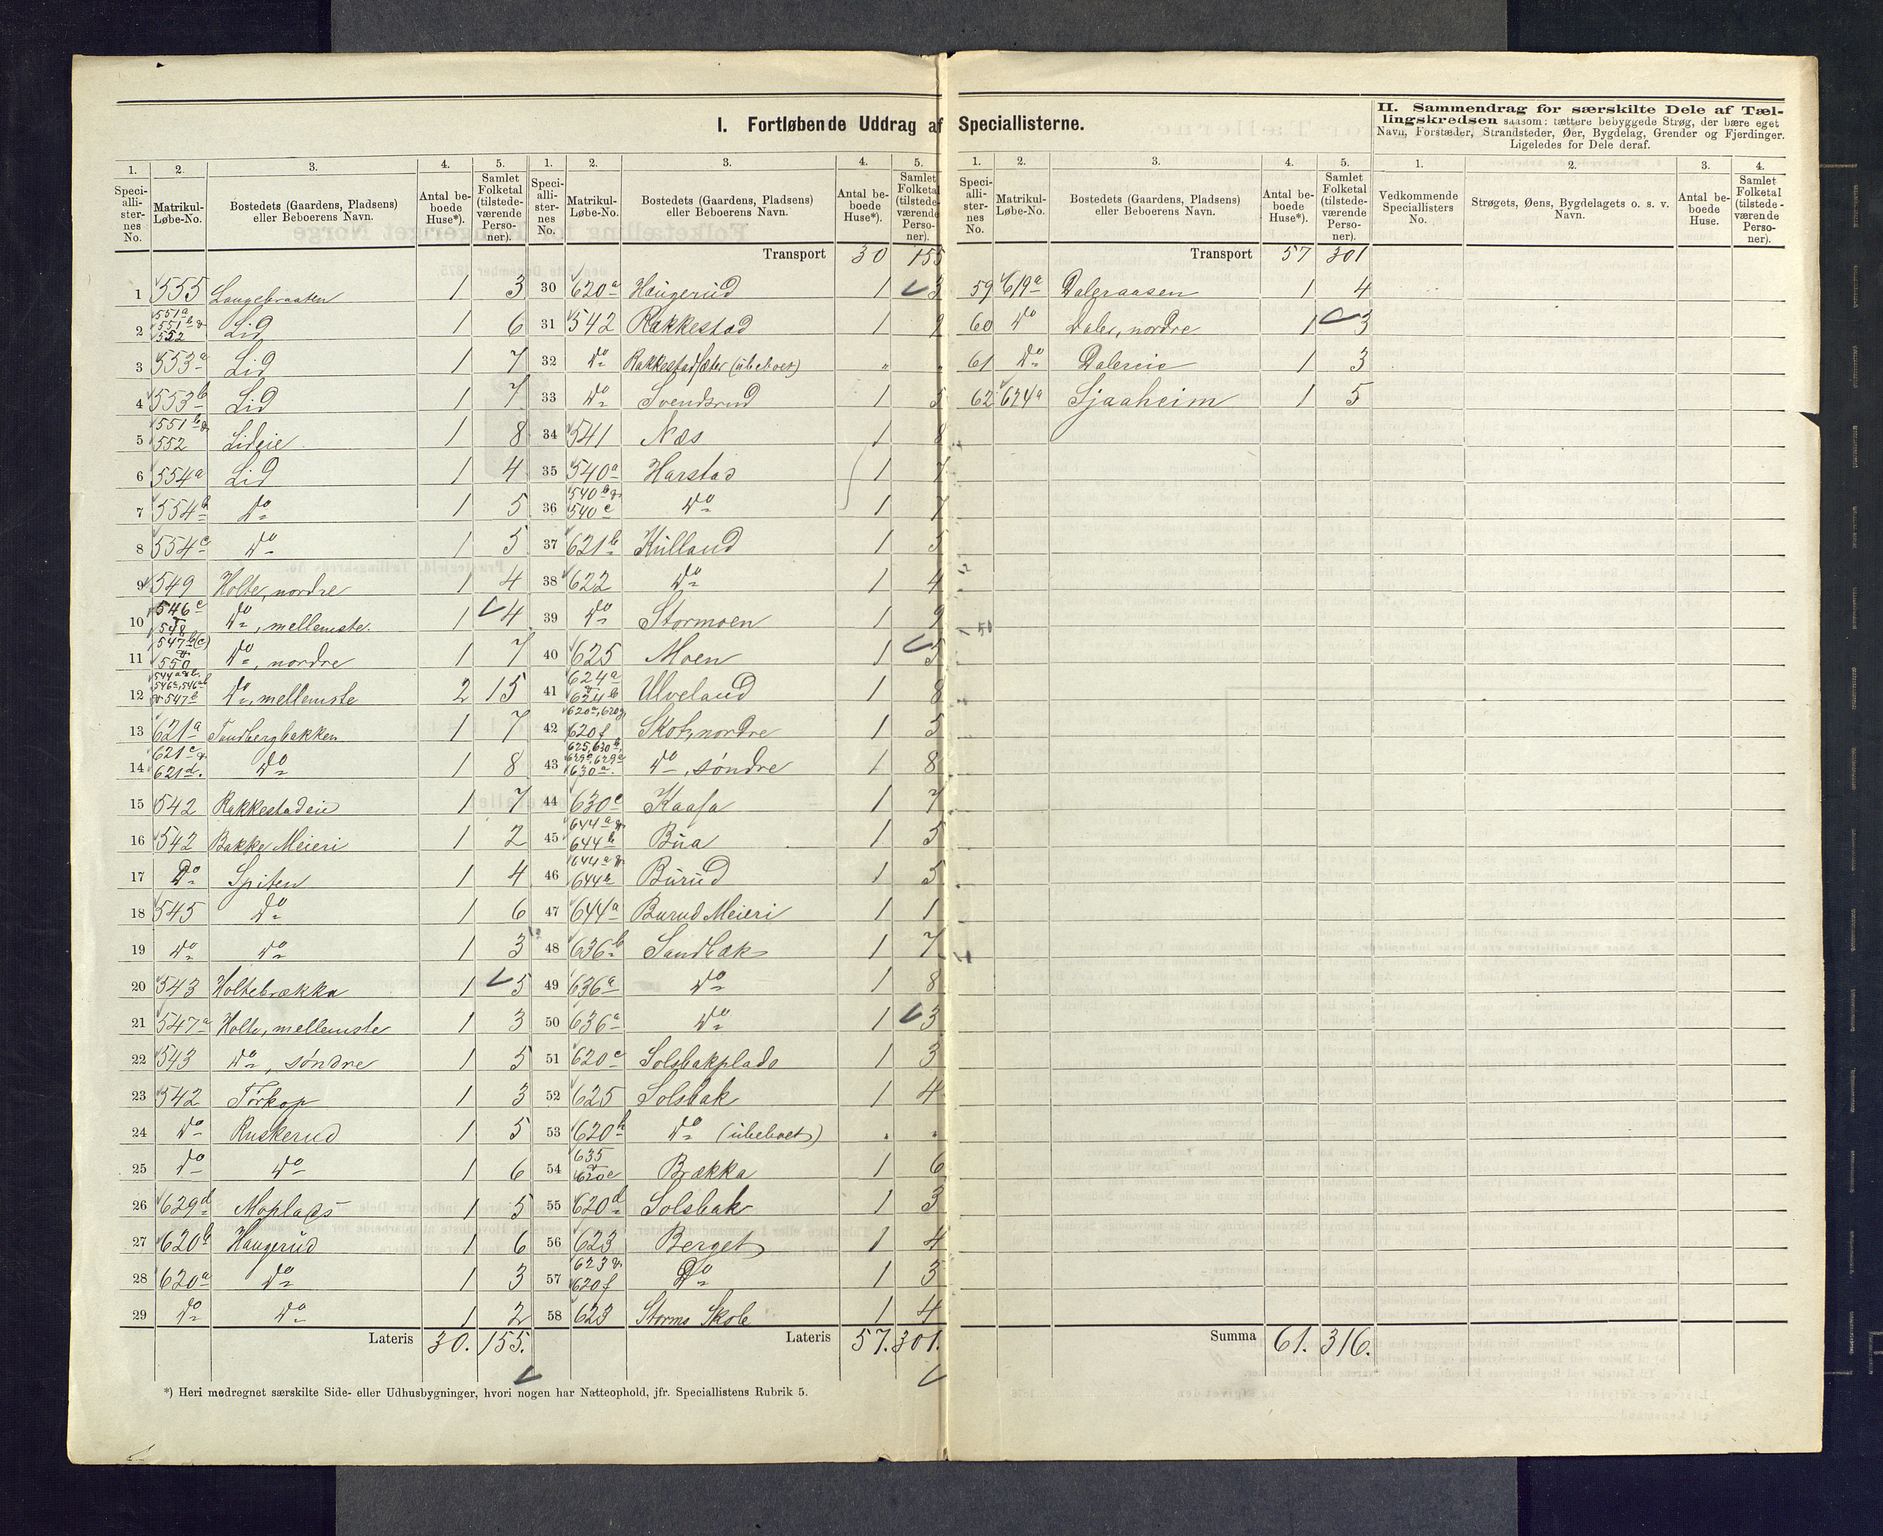 I. Fortløbende Uddrag af Speciallisterne.
II. Sammendrag for særskilte Dele af Tællingskredsen saasom: tættere bebyggede Strøg, der bære eget Navn, Forstæder, Strandsteder, Øer, Bygdelag, Grender og Fjerdinger. Ligeledes for Dele deraf.
1. 2. 3. 4. 5.
Speciallisternes No. Matrikul-Løbe-No. Bostedets (Gaardens, Pladsens) eller Beboerens Navn. Antal beboede Huse*). Samlet Folketal (tilstedeværende Personer).
1 555 Langebraaten 1 3
2 551a 551b & 552 Lid 1 6
3 553a Lid 1 7
4 553b Lid 1 7
5 551b & 552 Lideie 1 8
6 554a Lid 1 4
7 554b Do 1 5
8 554c Do 1 5
9 549 Holte, nordre 1 4
10 546c & 548 Do, mellemste. 1 4
11 547b(c) & 550 Do, nordre 1 7
12 544a & b, 546a, 546b & 547b Do, mellemste 2 15
13 621a Sandbergbakken 1 7
14 621c & 621d. Do 1 8
15 542 Rakkestadeie 1 7
16 542 Bakke Meieri 1 2
17 Do Spiten 1 4
18 545 Do 1 6
19 Do Do 1 3
20 543 Holtebrækka 1 5
21 547a Holte, mellemste 1 3
22 543 Do, søndre 1 5
23 542 Torkop 1 3
24 Do Ruskerud 1 5
25 Do Do 1 6
26 629d Moplads 1 5
27 620b Haugerud 1 6
28 620a Do 1 3
29 Do Do 1 2
Lateris 30. 155.
1. 2. 3. 4. 5.
Speciallisternes No. Matrikul-Løbe-No. Bostedets (Gaardens, Pladsens) eller Beboerens Navn. Antal beboede Huse*). Samlet Folketal (tilstedeværende Personer).
Transport 30 155
30 620a Haugerud 1 3
31 542 Rakkestad 1 9
32 Do Rakkestadsæter (ubeboet) " "
33 Do Svendsrud 1 5
34 541 Næs 1 8
35 540a Harstad 1 7
36 540b & 540c Do 1 7
37 621b Kulland 1 5
38 622 Do 1 4
39 Do Stormoen 1 9
40 625 Moen 1 5
41 624a & 624b Ulveland 1 8
42 620a, 620g, 620f Skot, nordre 1 5
43 625, 630b, 629a 630a Do, søndre 1 8
44 630c Kaasa 1 7
45 644a & 644b Bua 1 5
46 644a & 644b Burud 1 5
47 644a Burud Meieri 1 1
48 636b Sandbæk 1 7
49 636a Do 1 8
50 636a Do 1 3
51 620c Solsbakplads 1 3
52 625 Solsbak 1 4
53 620h Do (ubeboet) " "
54 635 & 620e Brækka 1 6
55 620d Solsbak 1 3
56 623 Berget 1 4
57 623 & 620f Do 1 3
58 623 Storms Skole 1 4
Lateris 57. 301.
1. 2. 3. 4. 5.
Speciallisternes No. Matrikul-Løbe-No. Bostedets (Gaardens, Pladsens) eller Beboerens Navn. Antal beboede Huse*). Samlet Folketal (tilstedeværende Personer).
Transport 57 301
59 619a Daleraasen 1 4
60 Do Daler, nordre 1 3
61 Do Dalereie 1 3
62 624a Sjaaheim 1 5
50
Summa 61. 316.
1. 2. 3. 4.
Vedkommende Speciallisters No. Strøgets, Øens, Bygdelagets o. s. v. Navn. Antal beboede Huse. Samlet Folketal (tilstedeværende Personer).
*) Heri medregnet særskilte Side- eller Udhusbygninger, hvori nogen har Natteophold, jfr. Speciallistens Rubrik 5.